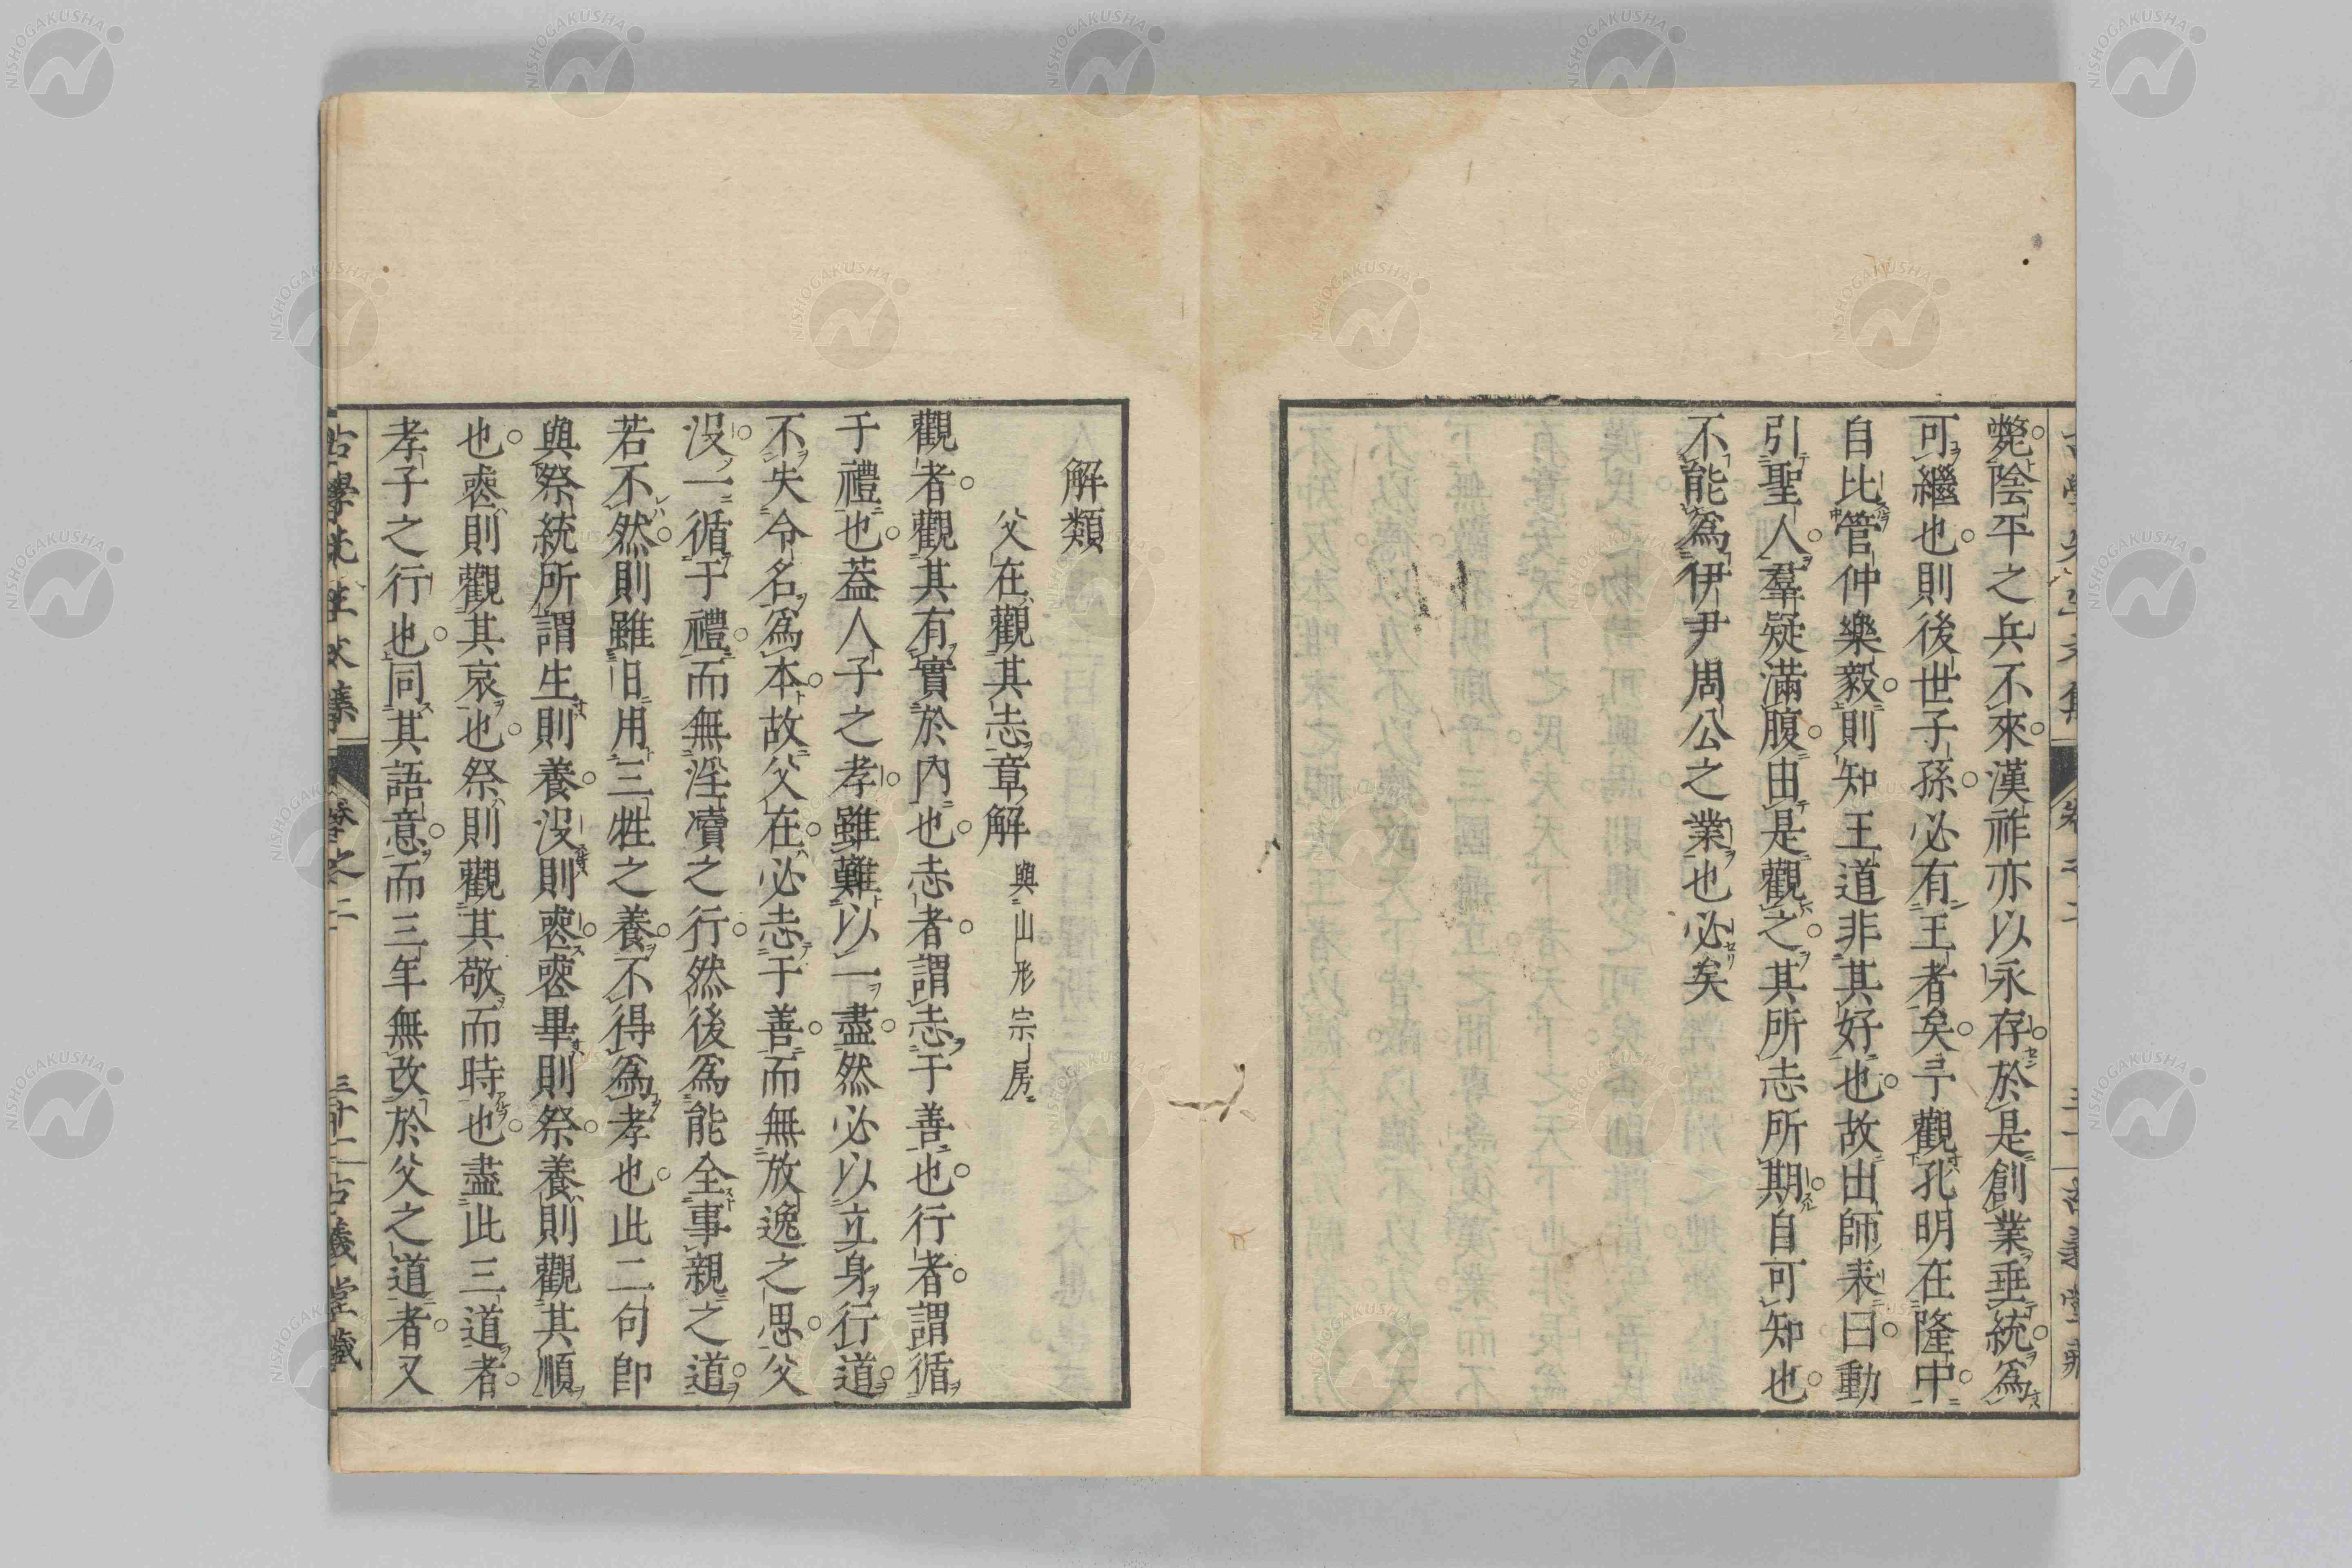 斃陰平之兵不來漢祚亦以永存於是創業垂統爲
可繼也則後世子孫必有王者矣予觀孔明在隆中
自比管仲樂毅則知王道非其好也故出師表曰動
引聖人羣疑滿腹由是觀之其所志所期自可知也
不能爲伊尹周公之業也必矣
解類
父在觀其志章解 與山形宗房
觀者觀其有實於內也志者謂志于善也行者謂循
于禮也蓋人子之孝雖難以一盡然必以立身行道
不失令名爲本故父在必志于善而無放逸之思父
沒一循于禮而無淫凟之行然後爲能全事親之道
若不然則雖旧用三牲之養不得爲孝也此二句卽
與祭統所謂生則養沒則喪喪畢則祭養則觀其順
也喪則觀其哀也祭則觀其敬而時也盡此三道者
孝子之行也同其語意而三年無改於父之道者又
古學先生文集 卷之二 三十二 古義堂藏